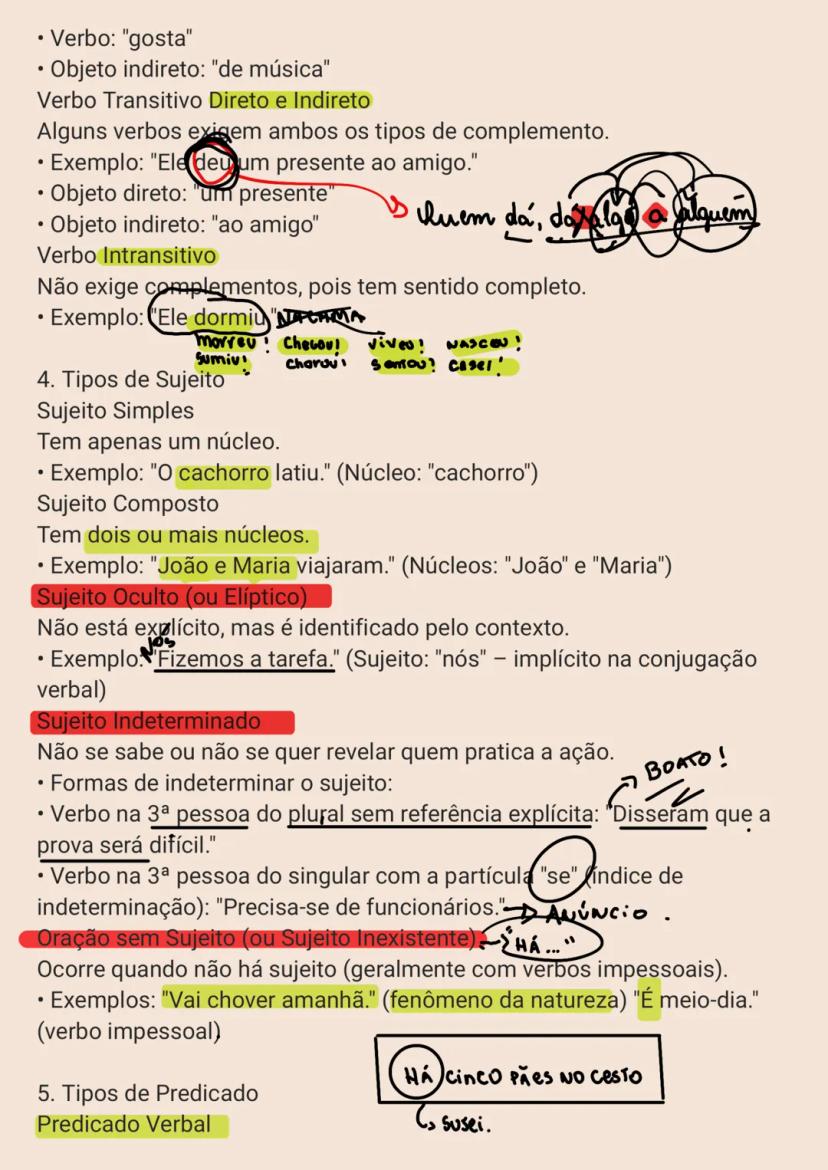 • Verbo: "gosta"
• Objeto indireto: "de música"
Verbo Transitivo Direto e Indireto
Alguns verbos exigem ambos os tipos de complemento.
• Exemplo: "Ele deu um presente ao amigo."
• Objeto direto: "um presente"
Quem dá, dá algo a alguém
• Objeto indireto: "ao amigo"
Verbo Intransitivo
Não exige complementos, pois tem sentido completo.
• Exemplo: "Ele dormiu." NA CAMA
morreu! Chegou! viveu! nasceu!
sumiu! chorou! casei!
4. Tipos de Sujeito
Sujeito Simples
Tem apenas um núcleo.
• Exemplo: "O cachorro latiu." (Núcleo: "cachorro")
Sujeito Composto
Tem dois ou mais núcleos.
• Exemplo: "João e Maria viajaram." (Núcleos: "João" e "Maria")
Sujeito Oculto (ou Elíptico)
Não está explícito, mas é identificado pelo contexto.
Nós
• Exemplo: "Fizemos a tarefa." (Sujeito: "nós" – implícito na conjugação
verbal)
Sujeito Indeterminado
Não se sabe ou não se quer revelar quem pratica a ação.
BOATO!
• Formas de indeterminar o sujeito:
• Verbo na 3ª pessoa do plural sem referência explícita: "Disseram que a
prova será difícil."
• Verbo na 3ª pessoa do singular com a partícula "se" (índice de
indeterminação): "Precisa-se de funcionários." ANÚNCIO.
Oração sem Sujeito (ou Sujeito Inexistente) "HÁ..."
Ocorre quando não há sujeito (geralmente com verbos impessoais).
• Exemplos: "Vai chover amanhã." (fenômeno da natureza) "É meio-dia."
(verbo impessoal)
HÁ CINCO PÃES NO CESTO
5. Tipos de Predicado
Predicado Verbal